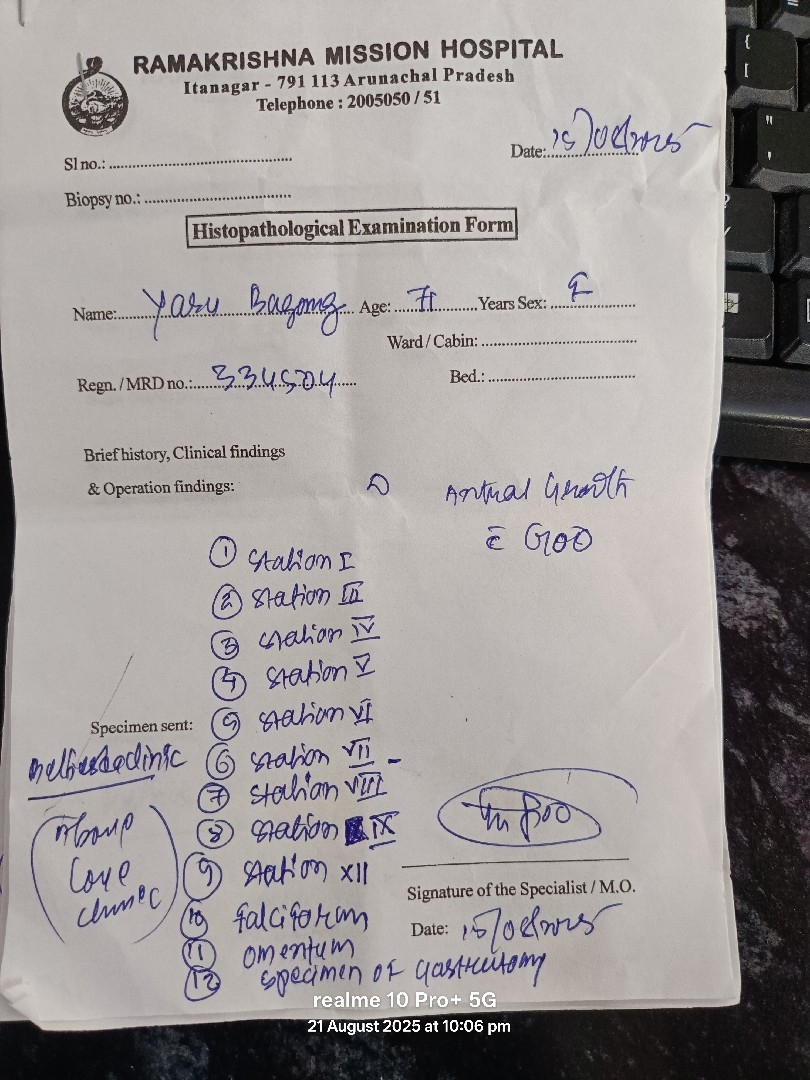 RAMAKRISHNA MISSION HOSPITAL
Itanagar - 791 113 Arunachal Pradesh
Telephone : 2005050 / 51
Date: 15/08/2025
Sl no.:
Biopsy no.:
Histopathological Examination Form
Name: Yaru Bagang Age: 71 Years Sex: F
Ward / Cabin:
Regn. / MRD no.: 334504
Bed.:
Brief history, Clinical findings
& Operation findings:
Antral Growth
c̄ GOO
① Station I
② Station III
③ Station IV
④ Station V
Specimen sent: ⑤ Station VI
⑥ Station VII -
⑦ Station VIII
⑧ Station IX
⑨ Station XII
Signature of the Specialist / M.O.
⑩ falciforum
Date: 15/08/2025
⑪ omentum
⑫ specimen of Gastrectomy
realme 10 Pro+ 5G
21 August 2025 at 10:06 pm